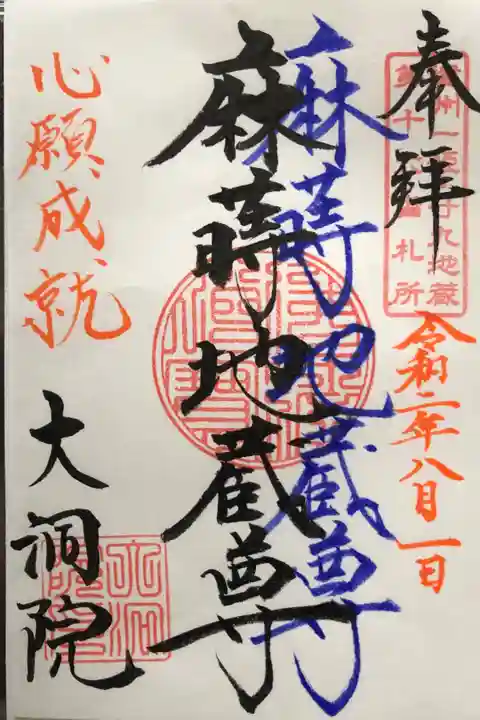 奉拝
札所
令和二年八月一日
麻蒔地蔵尊
麻蒔地蔵尊
心願成就
大洞院